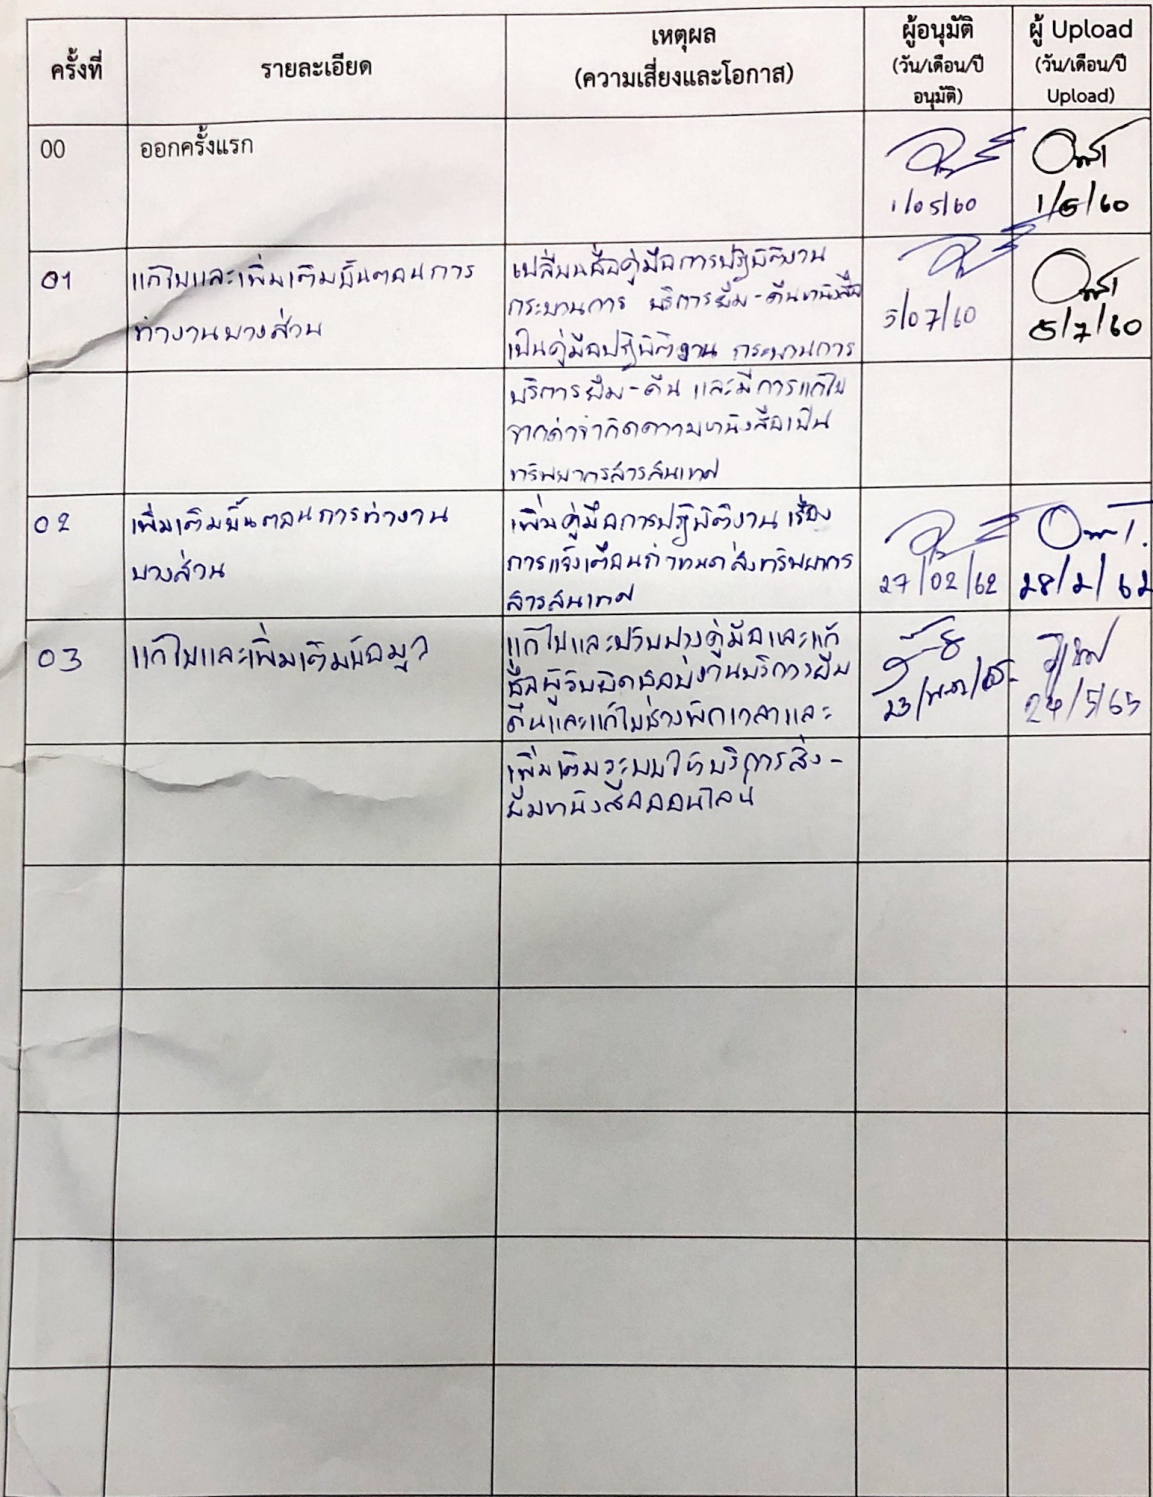 ครั้งที่
รายละเอียด
เหตุผล
(ความเสี่ยงและโอกาส)
ผู้อนุมัติ
(วัน/เดือน/ปี
อนุมัติ)
ผู้ Upload
(วัน/เดือน/ปี
Upload)
00
ออกครั้งแรก
1/05/60
1/5/60
01
แก้ไขและเพิ่มเติมขั้นตอนการ
ทำงานบางส่วน
เปลี่ยนชื่อคู่มือการปฏิบัติงาน
กระบวนการ บริการยืม-คืนหนังสือ
เป็นคู่มือปฏิบัติงาน กระบวนการ
บริการยืม-คืน และมีการแก้ไข
จากคำจำกัดความหนังสือเป็น
ทรัพยากรสารสนเทศ
5/07/60
5/7/60
02
เพิ่มเติมขั้นตอนการทำงาน
บางส่วน
เพิ่มคู่มือการปฏิบัติงาน เรื่อง
การแจ้งเตือนกำหนดส่งทรัพยากร
สารสนเทศ
27/02/62
28/2/62
03
แก้ไขและเพิ่มเติมข้อมูล
แก้ไขและปรับปรุงคู่มือและแก้
ชื่อผู้รับผิดชอบงานบริการยืม
คืนและแก้ไขช่วงพักเวลาและ
เพิ่มเติมระบบให้บริการสั่ง-
ยืมหนังสือออนไลน์
24/5/65